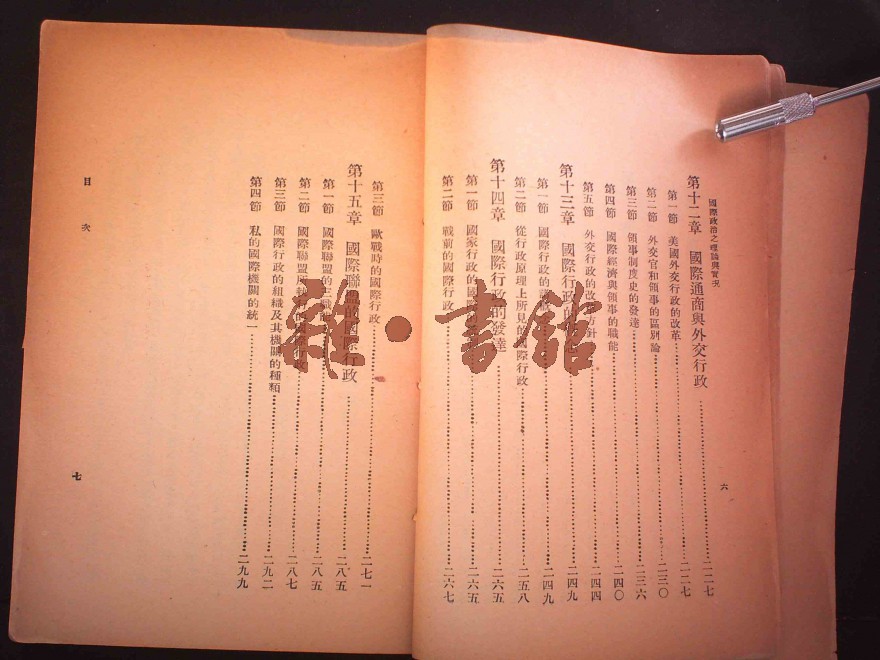 國際政治之理論與實況
第十二章 國際通商與外交行政 二二七
第一節 美國外交行政的改革 二二七
第二節 外交官和領事的區別論 二三〇
第三節 領事制度史的發達 二三六
第四節 國際經濟與領事的職能 二四〇
第五節 外交行政的改 方針 二四四
第十三章 國際行政的 二四九
第一節 國際行政的 二四九
第二節 從行政原理上所見的國際行政 二五八
第十四章 國際行政的發達 二六五
第一節 國家行政的國 二六五
第二節 戰前的國際行政 二六七
六
第三節 歐戰時的國際行政 二七一
第十五章 國際聯盟的國際行政 二八五
第一節 國際聯盟的三職 二八五
第二節 國際聯盟所 的國際行政 二八七
第三節 國際行政的組織及其機關的種類 二九二
第四節 私的國際機關的統一 二九九
目次
七
雜·書館